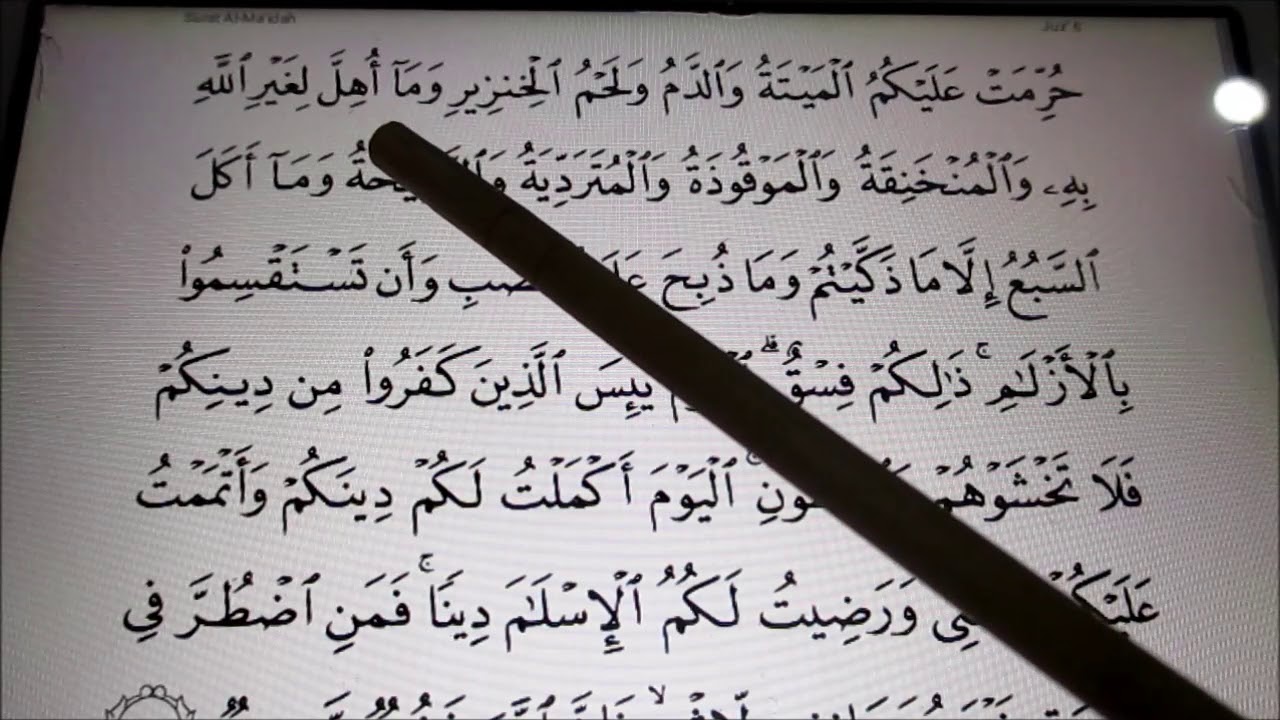 Surat Al-Ma'idah Juz' 6
حُرِّمَتْ عَلَيْكُمُ ٱلْمَيْتَةُ وَٱلدَّمُ وَلَحْمُ ٱلْخِنزِيرِ وَمَآ أُهِلَّ لِغَيْرِ ٱللَّهِ
بِهِۦ وَٱلْمُنْخَنِقَةُ وَٱلْمَوْقُوذَةُ وَٱلْمُتَرَدِّيَةُ وَمَآ أَكَلَ
ٱلسَّبُعُ إِلَّا مَا ذَكَّيْتُمْ وَمَا ذُبِحَ وَأَن تَسْتَقْسِمُوا۟
بِٱلْأَزْلَـٰمِ ۚ ذَٰلِكُمْ فِسْقٌ ۗ يَئِسَ ٱلَّذِينَ كَفَرُوا۟ مِن دِينِكُمْ
فَلَا تَخْشَوْهُمْ ۚ ٱلْيَوْمَ أَكْمَلْتُ لَكُمْ دِينَكُمْ وَأَتْمَمْتُ
وَرَضِيتُ لَكُمُ ٱلْإِسْلَـٰمَ دِينًا ۚ فَمَنِ ٱضْطُرَّ فِى